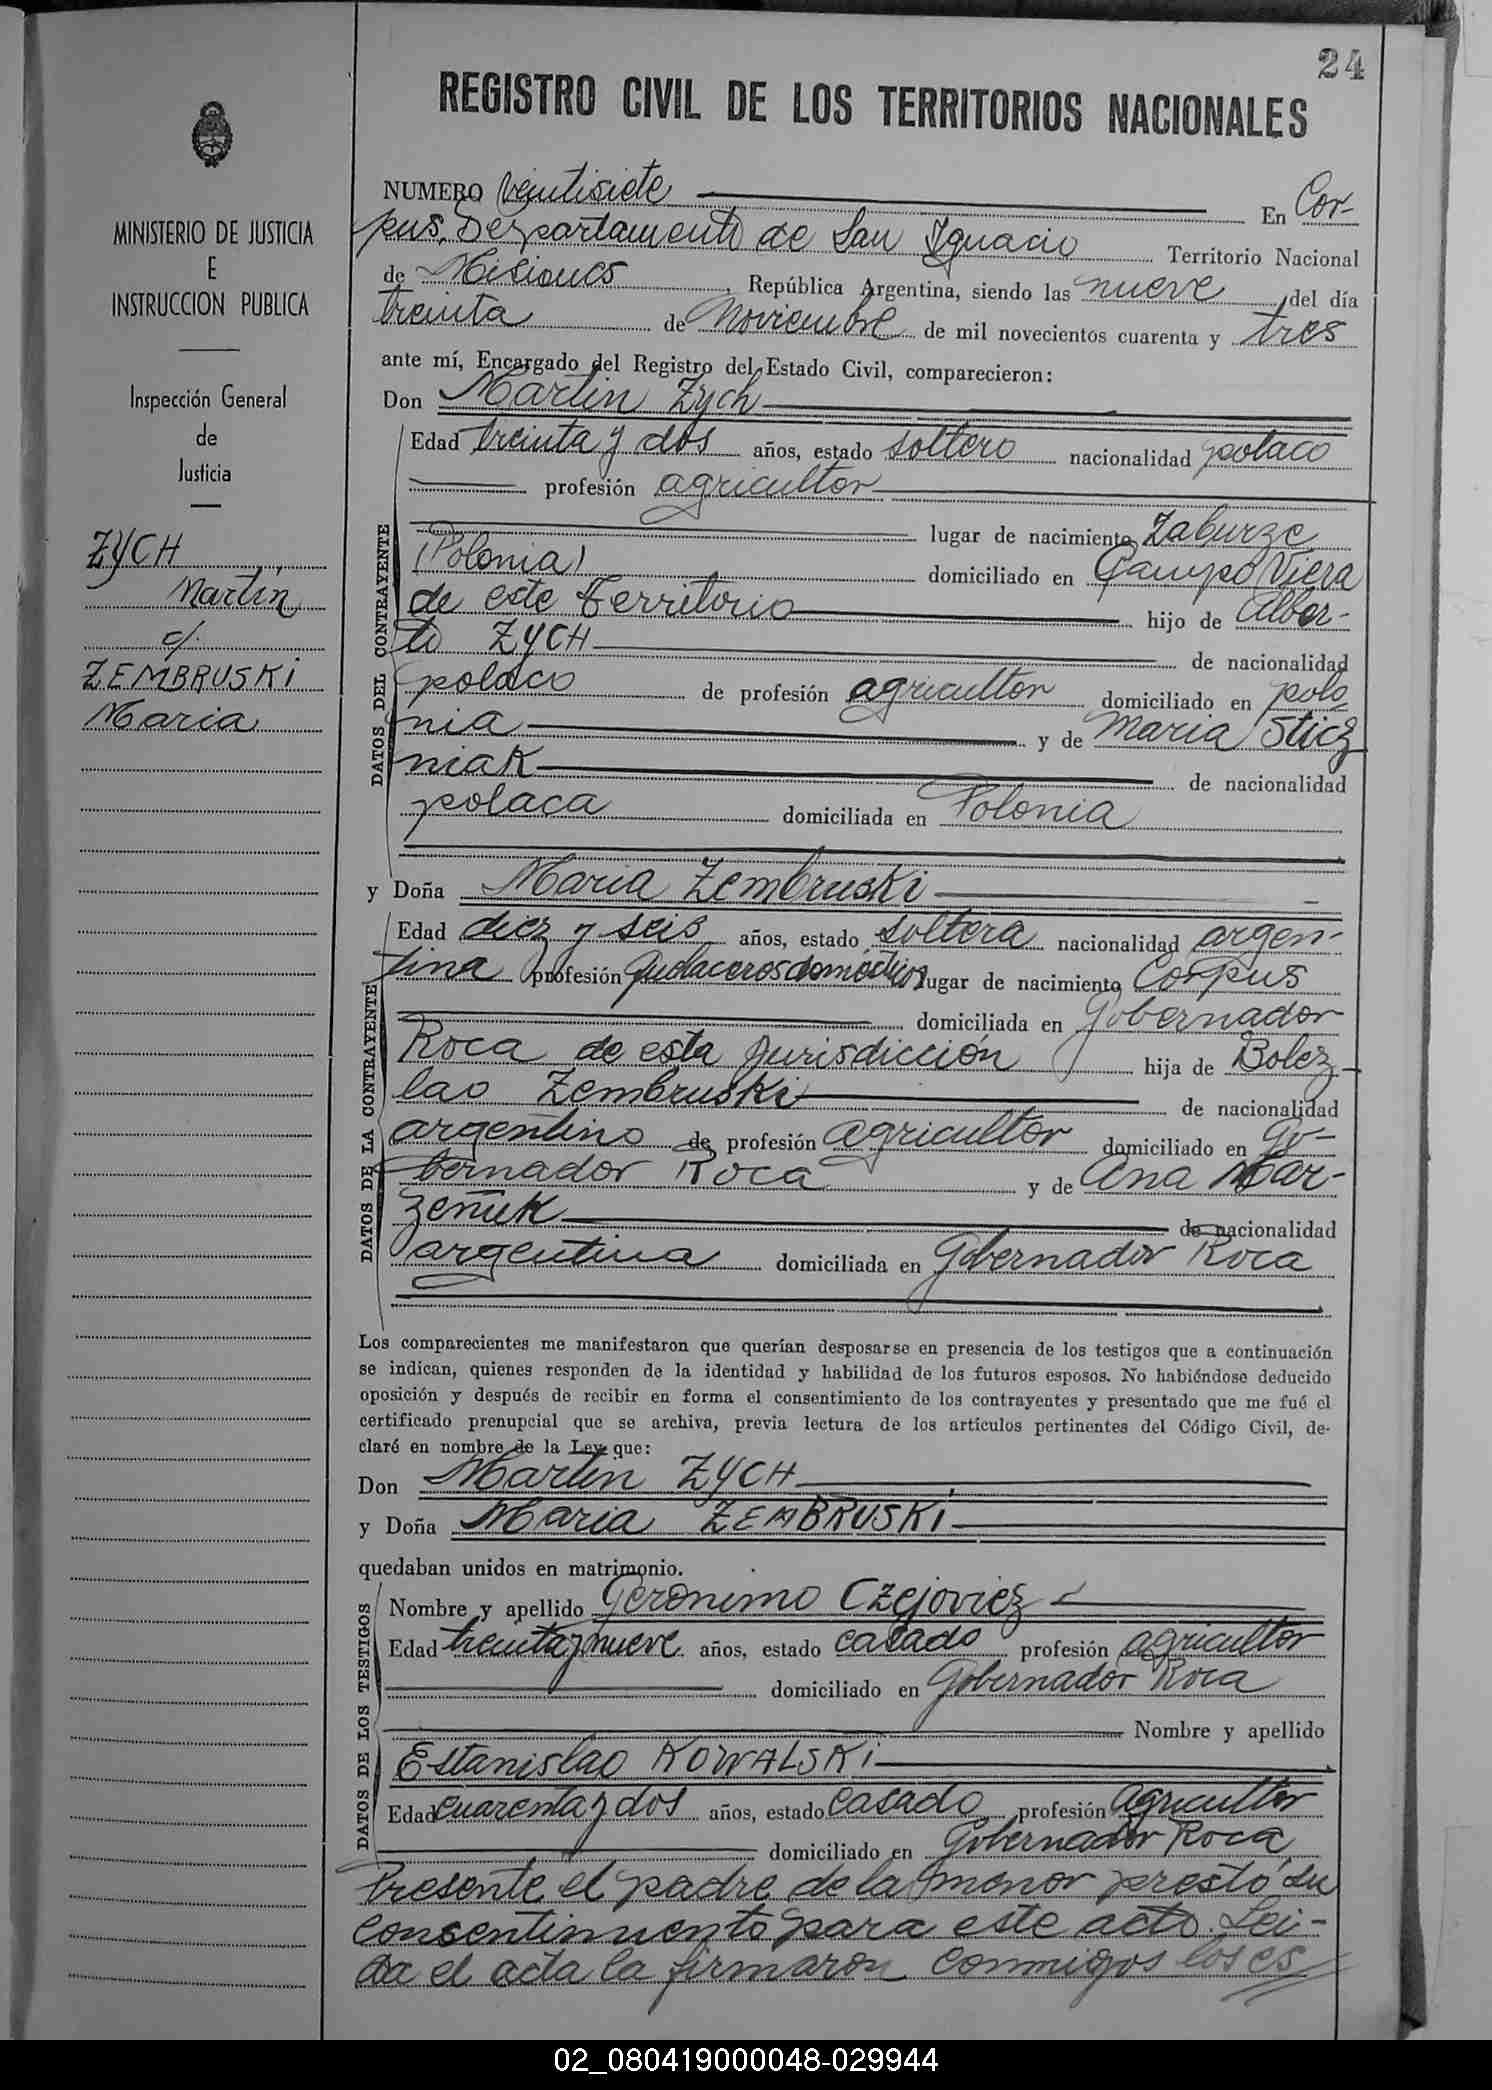 24
REGISTRO CIVIL DE LOS TERRITORIOS NACIONALES
MINISTERIO DE JUSTICIA
E
INSTRUCCION PUBLICA
Inspección General
de
Justicia
ZYCH
Martín
c/.
ZEMBRUSKI
Maria
NUMERO veintisiete En Cor-
pus, Departamento de San Ignacio Territorio Nacional
de Misiones, República Argentina, siendo las nueve del día
treinta de Noviembre de mil novecientos cuarenta y tres
ante mí, Encargado del Registro del Estado Civil, comparecieron:
Don Martin Zych
DATOS DEL CONTRAYENTE
Edad treinta y dos años, estado soltero nacionalidad polaco
profesión agricultor
lugar de nacimiento Zaburze
(Polonia) domiciliado en Campo Viera
de este Territorio hijo de Alber-
to ZYCH de nacionalidad
polaco de profesión agricultor domiciliado en polo
nia y de Maria Sticz
niak de nacionalidad
polaca domiciliada en Polonia
y Doña Maria Zembruski
DATOS DE LA CONTRAYENTE
Edad diez y seis años, estado soltera nacionalidad argen-
tina profesión quehaceres domésticos lugar de nacimiento Corpus
domiciliada en Gobernador
Roca de esta jurisdicción hija de Bolez-
lao Zembruski de nacionalidad
argentino de profesión agricultor domiciliado en Go-
bernador Roca y de Ana Mar-
zeñuk de nacionalidad
argentina domiciliada en Gobernador Roca
Los comparecientes me manifestaron que querían desposarse en presencia de los testigos que a continuación
se indican, quienes responden de la identidad y habilidad de los futuros esposos. No habiéndose deducido
oposición y después de recibir en forma el consentimiento de los contrayentes y presentado que me fué el
certificado prenupcial que se archiva, previa lectura de los artículos pertinentes del Código Civil, de-
claré en nombre de la Ley que:
Don Martin ZYCH
y Doña Maria ZEMBRUSKI
quedaban unidos en matrimonio.
DATOS DE LOS TESTIGOS
Nombre y apellido Geronimo Czejovicz
Edad treinta y nueve años, estado casado profesión agricultor
domiciliado en Gobernador Roca
Nombre y apellido
Estanislao KOWALSKI
Edad cuarenta y dos años, estado casado profesión agricultor
domiciliado en Gobernador Roca
Presente el padre de la menor prestó su
consentimiento para este acto. Lei-
da el acta la firmaron conmigo los es
02_080419000048-029944